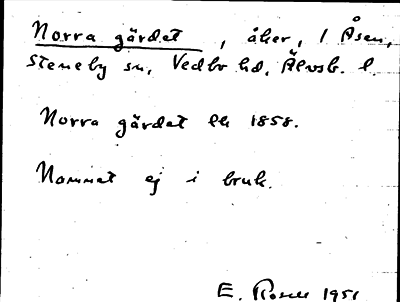 Norra gärdet, åker, 1 Åsen,
Steneby sn, Vedbo hd, Älvsb. l.
Norra gärdet lk 1858.
Namnet ej i bruk.
E. Rosell 1951